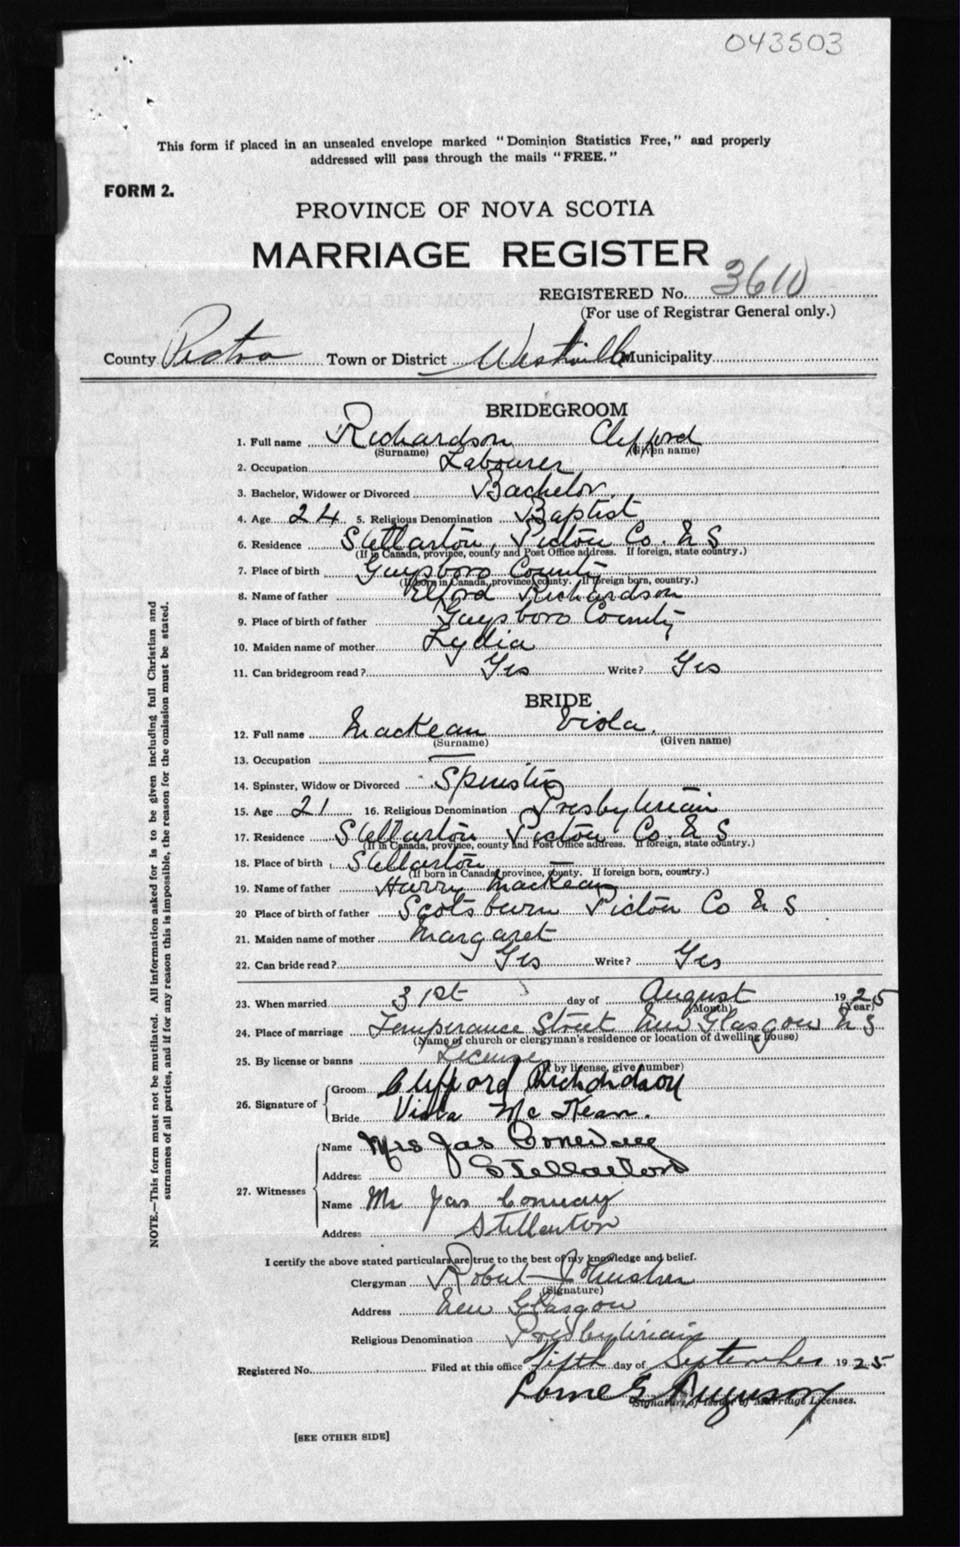 043503
This form if placed in an unsealed envelope marked "Dominion Statistics Free," and properly
addressed will pass through the mails "FREE."
FORM 2.
PROVINCE OF NOVA SCOTIA
MARRIAGE REGISTER
REGISTERED No. 3610
(For use of Registrar General only.)
County Pictou Town or District Westville Municipality
BRIDEGROOM
1. Full name Richardson Clifford
(Surname) (Given name)
2. Occupation Labourer
3. Bachelor, Widower or Divorced Bachelor.
4. Age 24 5. Religious Denomination Baptist
6. Residence Stellarton, Pictou Co. N S
(If in Canada, province, county and Post Office address. If foreign, state country.)
7. Place of birth Guysboro County
(If born in Canada, province, county. If foreign born, country.)
8. Name of father Richardson
9. Place of birth of father Guysboro County
10. Maiden name of mother Lydia
11. Can bridegroom read? Yes Write? Yes
BRIDE
12. Full name MacKean Viola.
(Surname) (Given name)
13. Occupation —
14. Spinster, Widow or Divorced Spinster
15. Age 21 16. Religious Denomination Presbyterian
17. Residence Stellarton Pictou Co. N S
(If in Canada, province, county and Post Office address. If foreign, state country.)
18. Place of birth Stellarton
(If born in Canada, province, county. If foreign born, country.)
19. Name of father Harry MacKean
20 Place of birth of father Scotsburn Pictou Co N S
21. Maiden name of mother Margaret
22. Can bride read? Yes Write? Yes
23. When married 31st day of August 1925
(Month) (Year)
24. Place of marriage Temperance Street New Glasgow N S
(Name of church or clergyman's residence or location of dwelling house)
25. By license or banns License
(If by license, give number)
26. Signature of Groom Clifford Richardson
Bride Viola McKean.
27. Witnesses
Name Mrs Jas Conway
Address Stellarton
Name Mr Jas Conway
Address Stellarton
I certify the above stated particulars are true to the best of my knowledge and belief.
Clergyman Robert Johnston
(Signature)
Address New Glasgow
Religious Denomination Presbyterian
Registered No. Filed at this office Fifth day of September 1925
Lorne G Ferguson
Signature of Issuer of Marriage Licenses.
[SEE OTHER SIDE]
NOTE.—This form must not be mutilated. All information asked for is to be given including full Christian and
surnames of all parties, and if for any reason this is impossible, the reason for the omission must be stated.